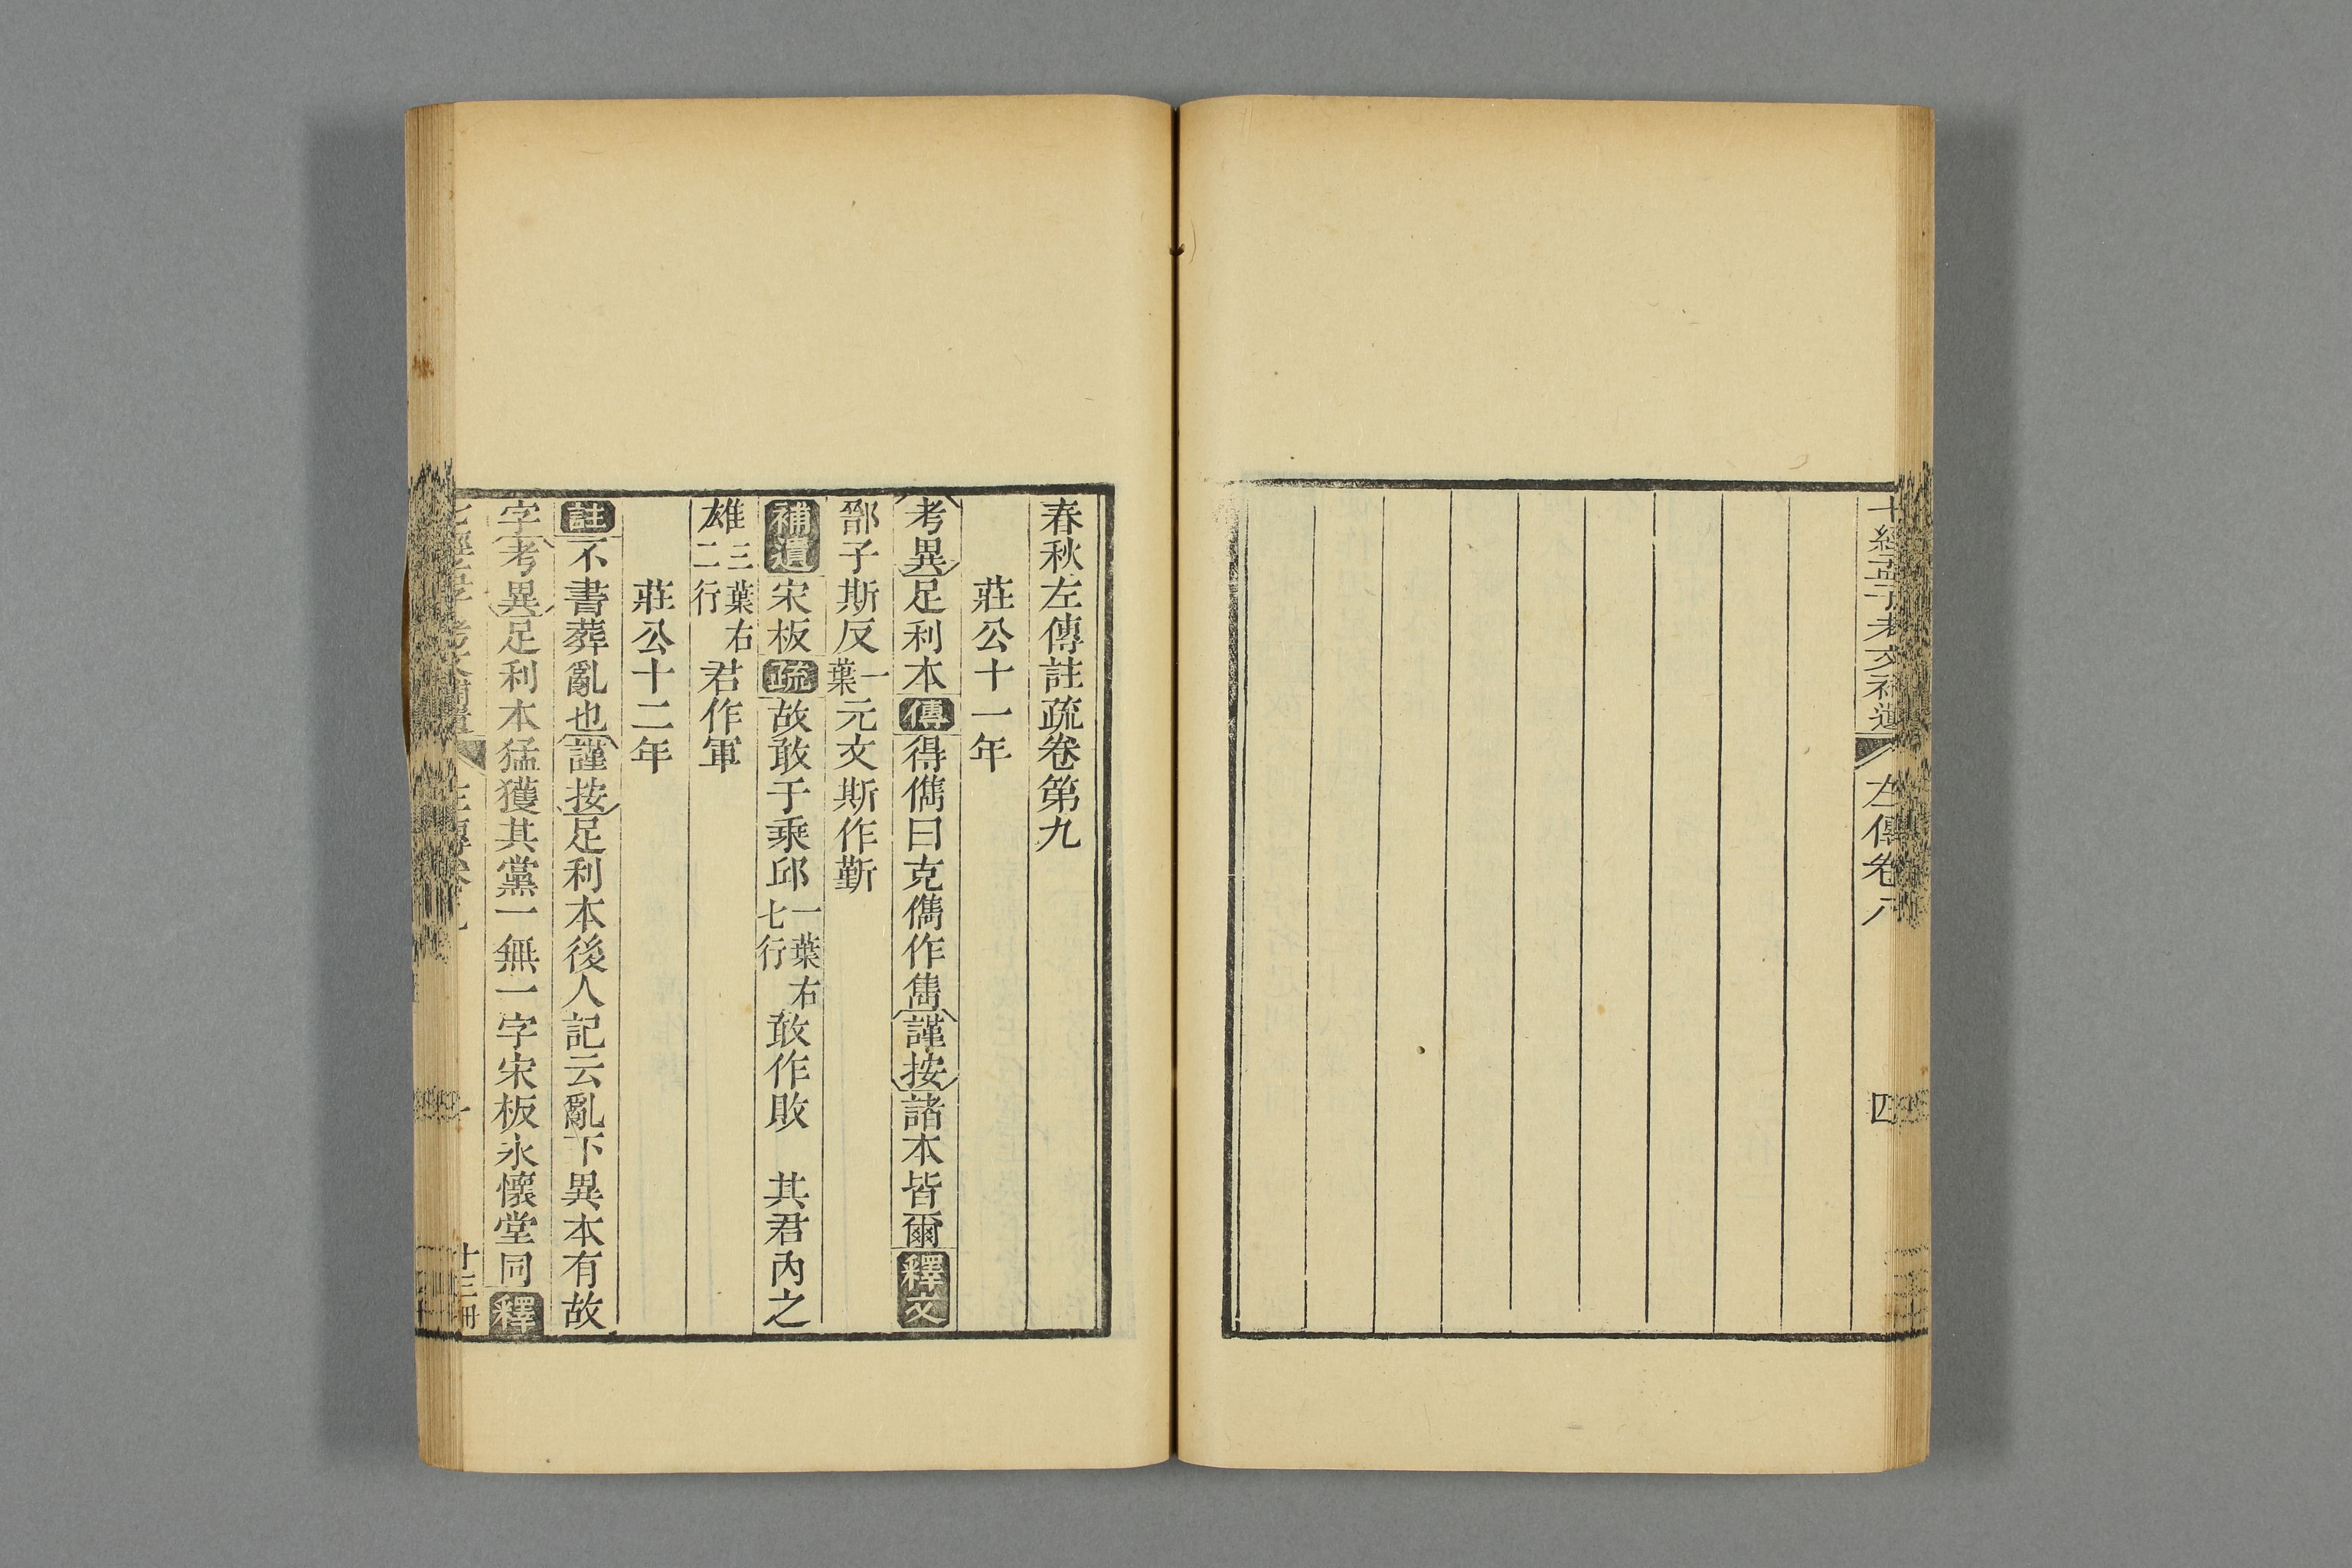 七經孟子考文補遺 左傳卷八 四
春秋左傳註疏卷第九
莊公十一年
考異足利本傳得儁曰克儁作雋謹按諸本皆爾釋文
鄑子斯反一葉元文斯作斴
補遺宋板疏故敢于乘邱一葉右七行敢作敗 其君內之
雄三葉右二行君作軍
莊公十二年
註不書葬亂也謹按足利本後人記云亂下異本有故
字考異足利本猛獲其黨一無一字宋板永懷堂同釋
十三冊